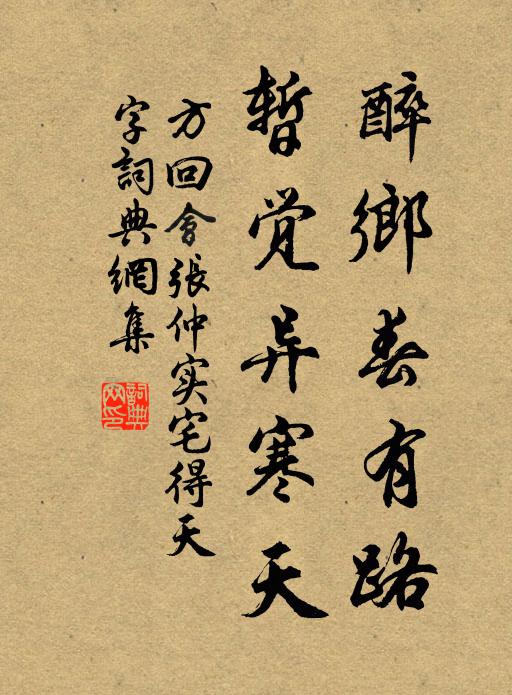 醉鄉春有路
暫觉异寒天
方回會張仲实宅得天
字詞典網集
詞典網印